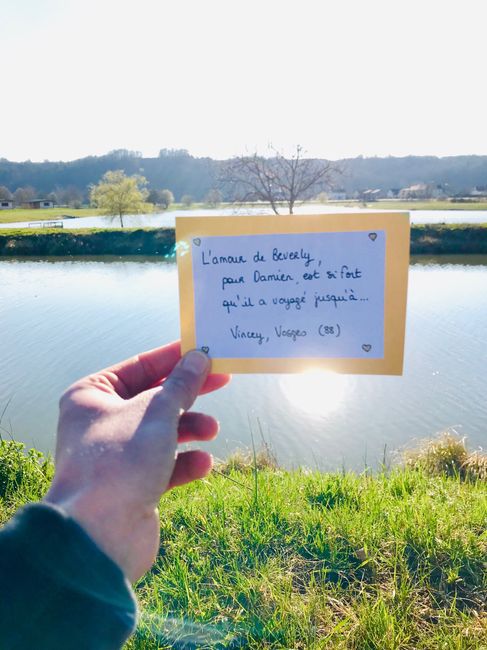 L'amour de Beverly,
pour Damien, est si fort
qu'il a voyagé jusqu'à...
Vincey, Vosges (88)